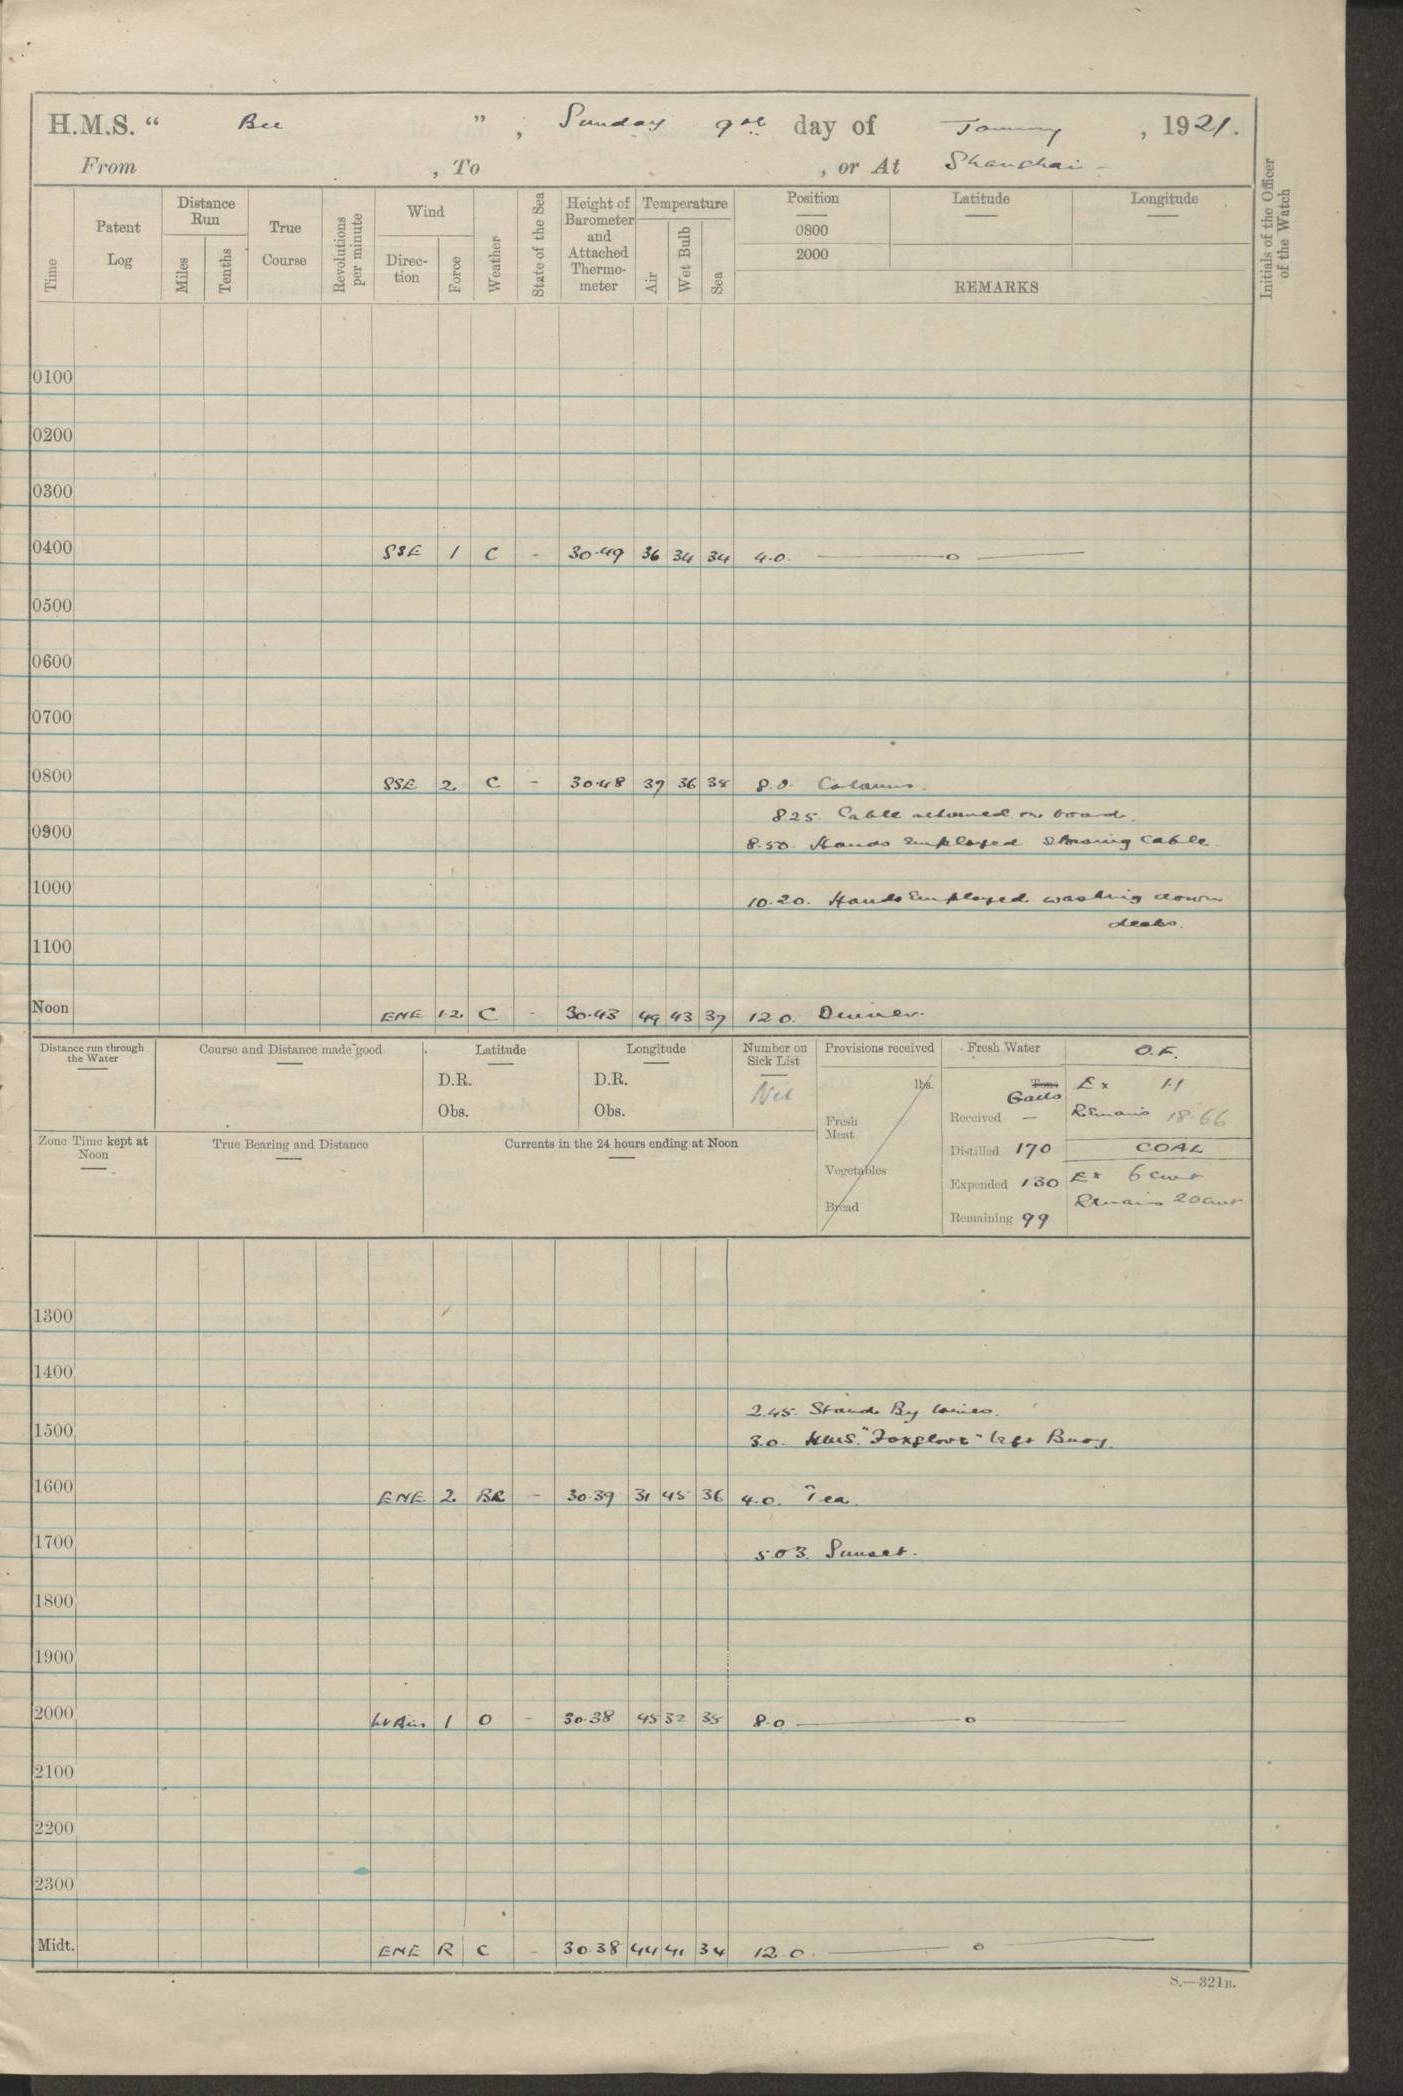 H.M.S. " Bee ", Sunday 9th day of January, 1921.
From , To , or At Shanghai
Time
Patent Log
Distance Run
Miles
Tenths
True Course
Revolutions per minute
Wind
Direction
Force
Weather
State of the Sea
Height of Barometer and Attached Thermometer
Temperature
Air
Wet Bulb
Sea
Position
0800
2000
Latitude
Longitude
REMARKS
Initials of the Officer of the Watch
0100
0200
0300
0400 SSE 1 C - 30.49 36 34 34 4.0. —o—
0500
0600
0700
0800 SSE 2 C - 30.48 37 36 38 8.0. Colours.
8.25. Cable returned on board.
0900
8.50. Hands Employed stowing cable.
1000
10.20. Hands Employed washing down
decks.
1100
Noon ENE 1.2. C - 30.43 49 43 37 12.0. Dinner.
Distance run through the Water
Course and Distance made good
Latitude
D.R.
Obs.
Longitude
D.R.
Obs.
Number on Sick List
Nil
Provisions received
lbs.
Fresh Meat
Vegetables
Bread
Fresh Water
Tons
Galls
Received —
Distilled 170
Expended 130
Remaining 99
O.F.
Ex 1.1
Remains 18.66
COAL
Ex 6 cwt
Remains 20 cwt
Zone Time kept at Noon
True Bearing and Distance
Currents in the 24 hours ending at Noon
1300
1400
2.45. Stand By wires.
1500
3.0. HMS. "Foxglove" left Buoy.
1600 ENE 2 BC - 30.39 31 45 36 4.0. Tea.
1700
5.03. Sunset.
1800
1900
2000 Lt Airs 1 O - 30.38 45 32 35 8.0 —o—
2100
2200
2300
Midt. ENE R C - 30.38 44 41 34 12.0. —o—
S.—321B.